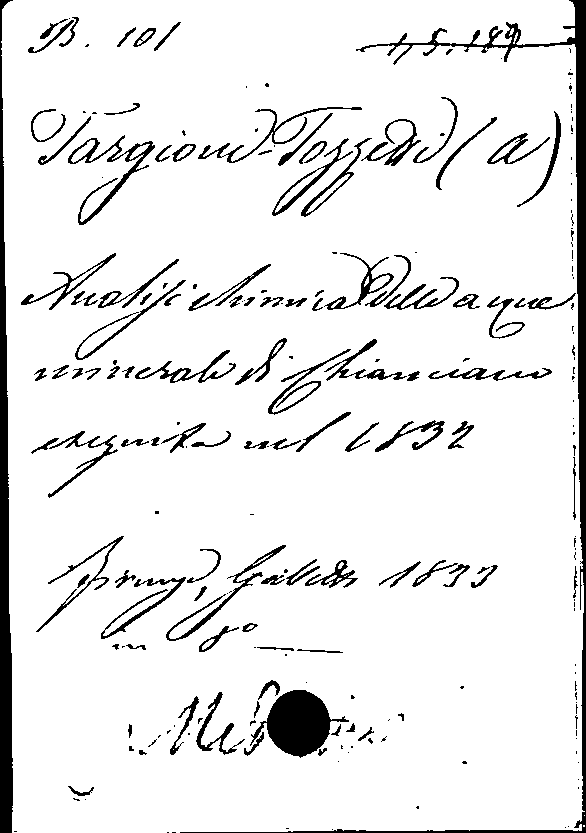 B. 101 1,5.187
Targioni-Tozzetti (A)
Analisi chimica delle acque
minerale di Chianciano
eseguita nel 1832
Firenze, Galletti 1833
in 8°